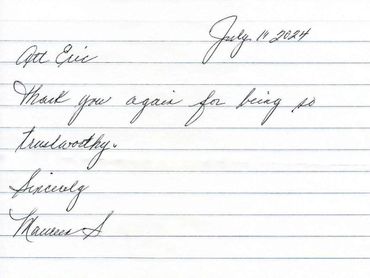 July 14 2024
Att Eric
Thank you again for being so
trustworthy.
Sincerely
Maureen S